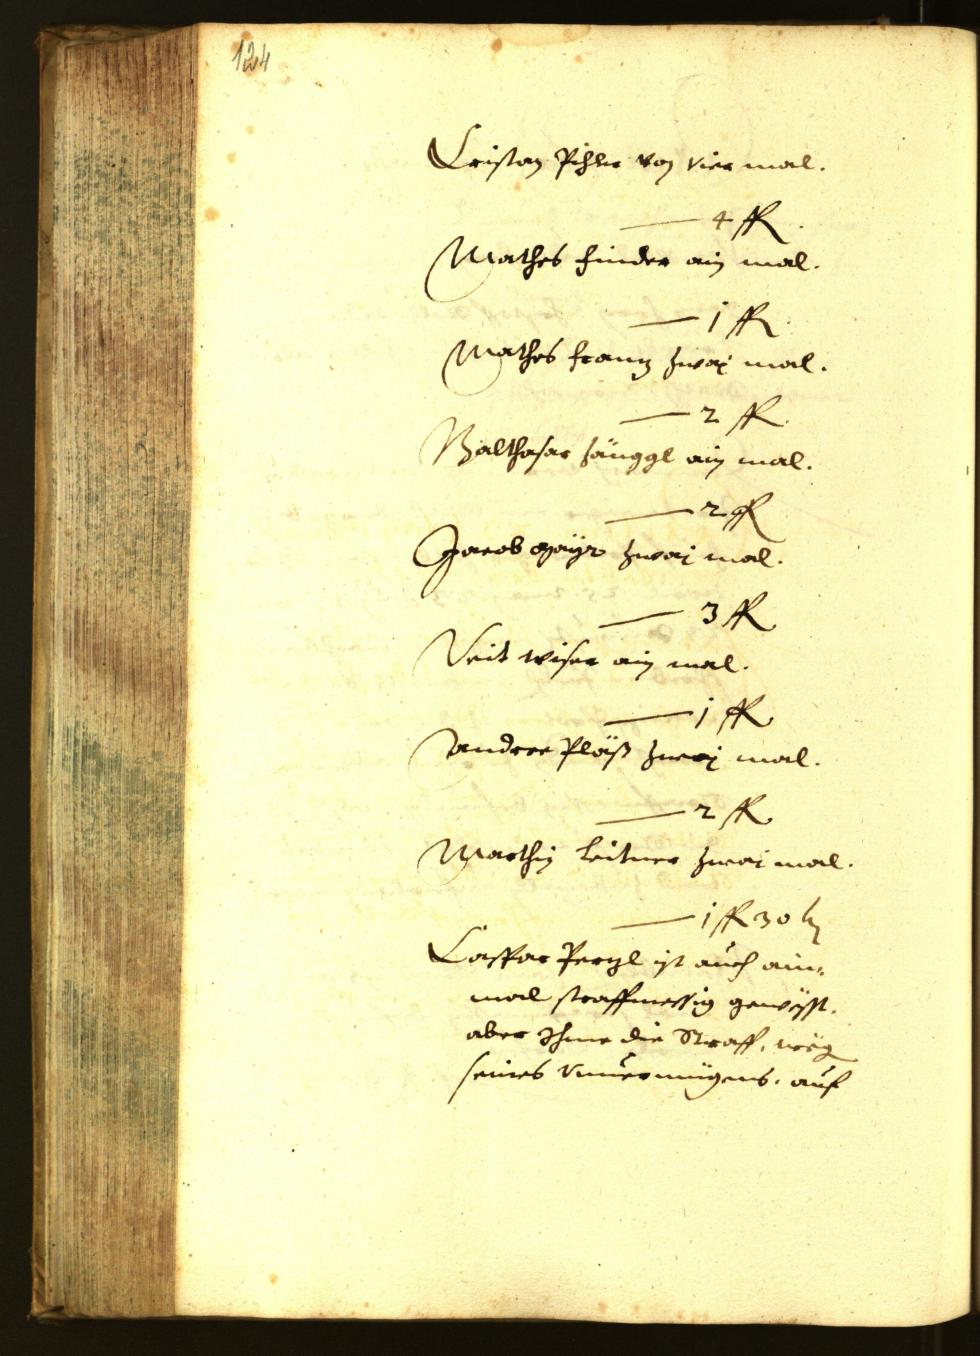 124
Cristan Pihler von vier mal.
— 4 fl
Mathes finder ain mal.
— 1 fl
Mathes frantz zwaj mal.
— 2 fl
Balthasar Hänggl ain mal.
— 2 fl
Jacob Mayr zwaj mal.
— 3 fl
Veit wiser ain mal.
— 1 fl
Andree Pläß zwaj mal.
— 2 fl
Marthin Leitner zwaj mal.
— 1 fl 30 kr
Caspar Pergl ist auch ain-
mal straffmessig gewesst.
aber Ihme die Straff, weg
seines vnuermügens. auf